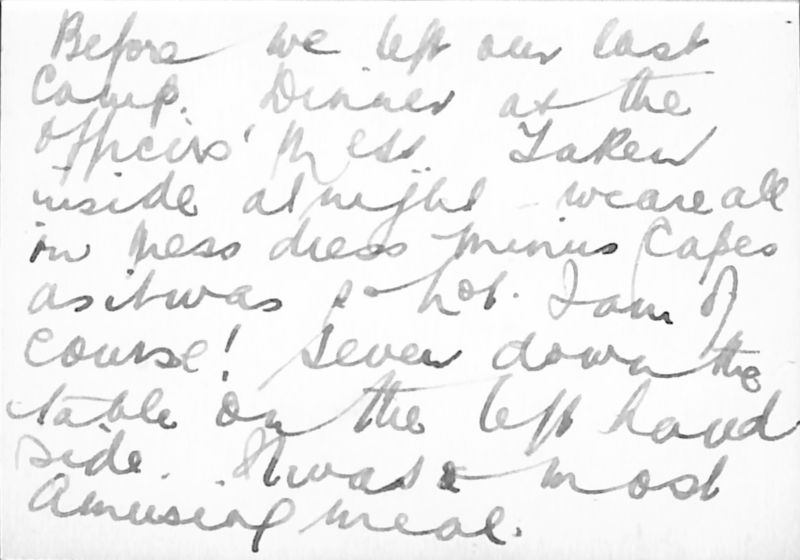 Before we left our last
Camp. Dinner at the
Officers' Mess Taken
inside at night - we are all
in Mess dress minus Capes
as it was so hot. I am of
course! Seven down the
table on the left hand
side. It was a most
amusing meal.